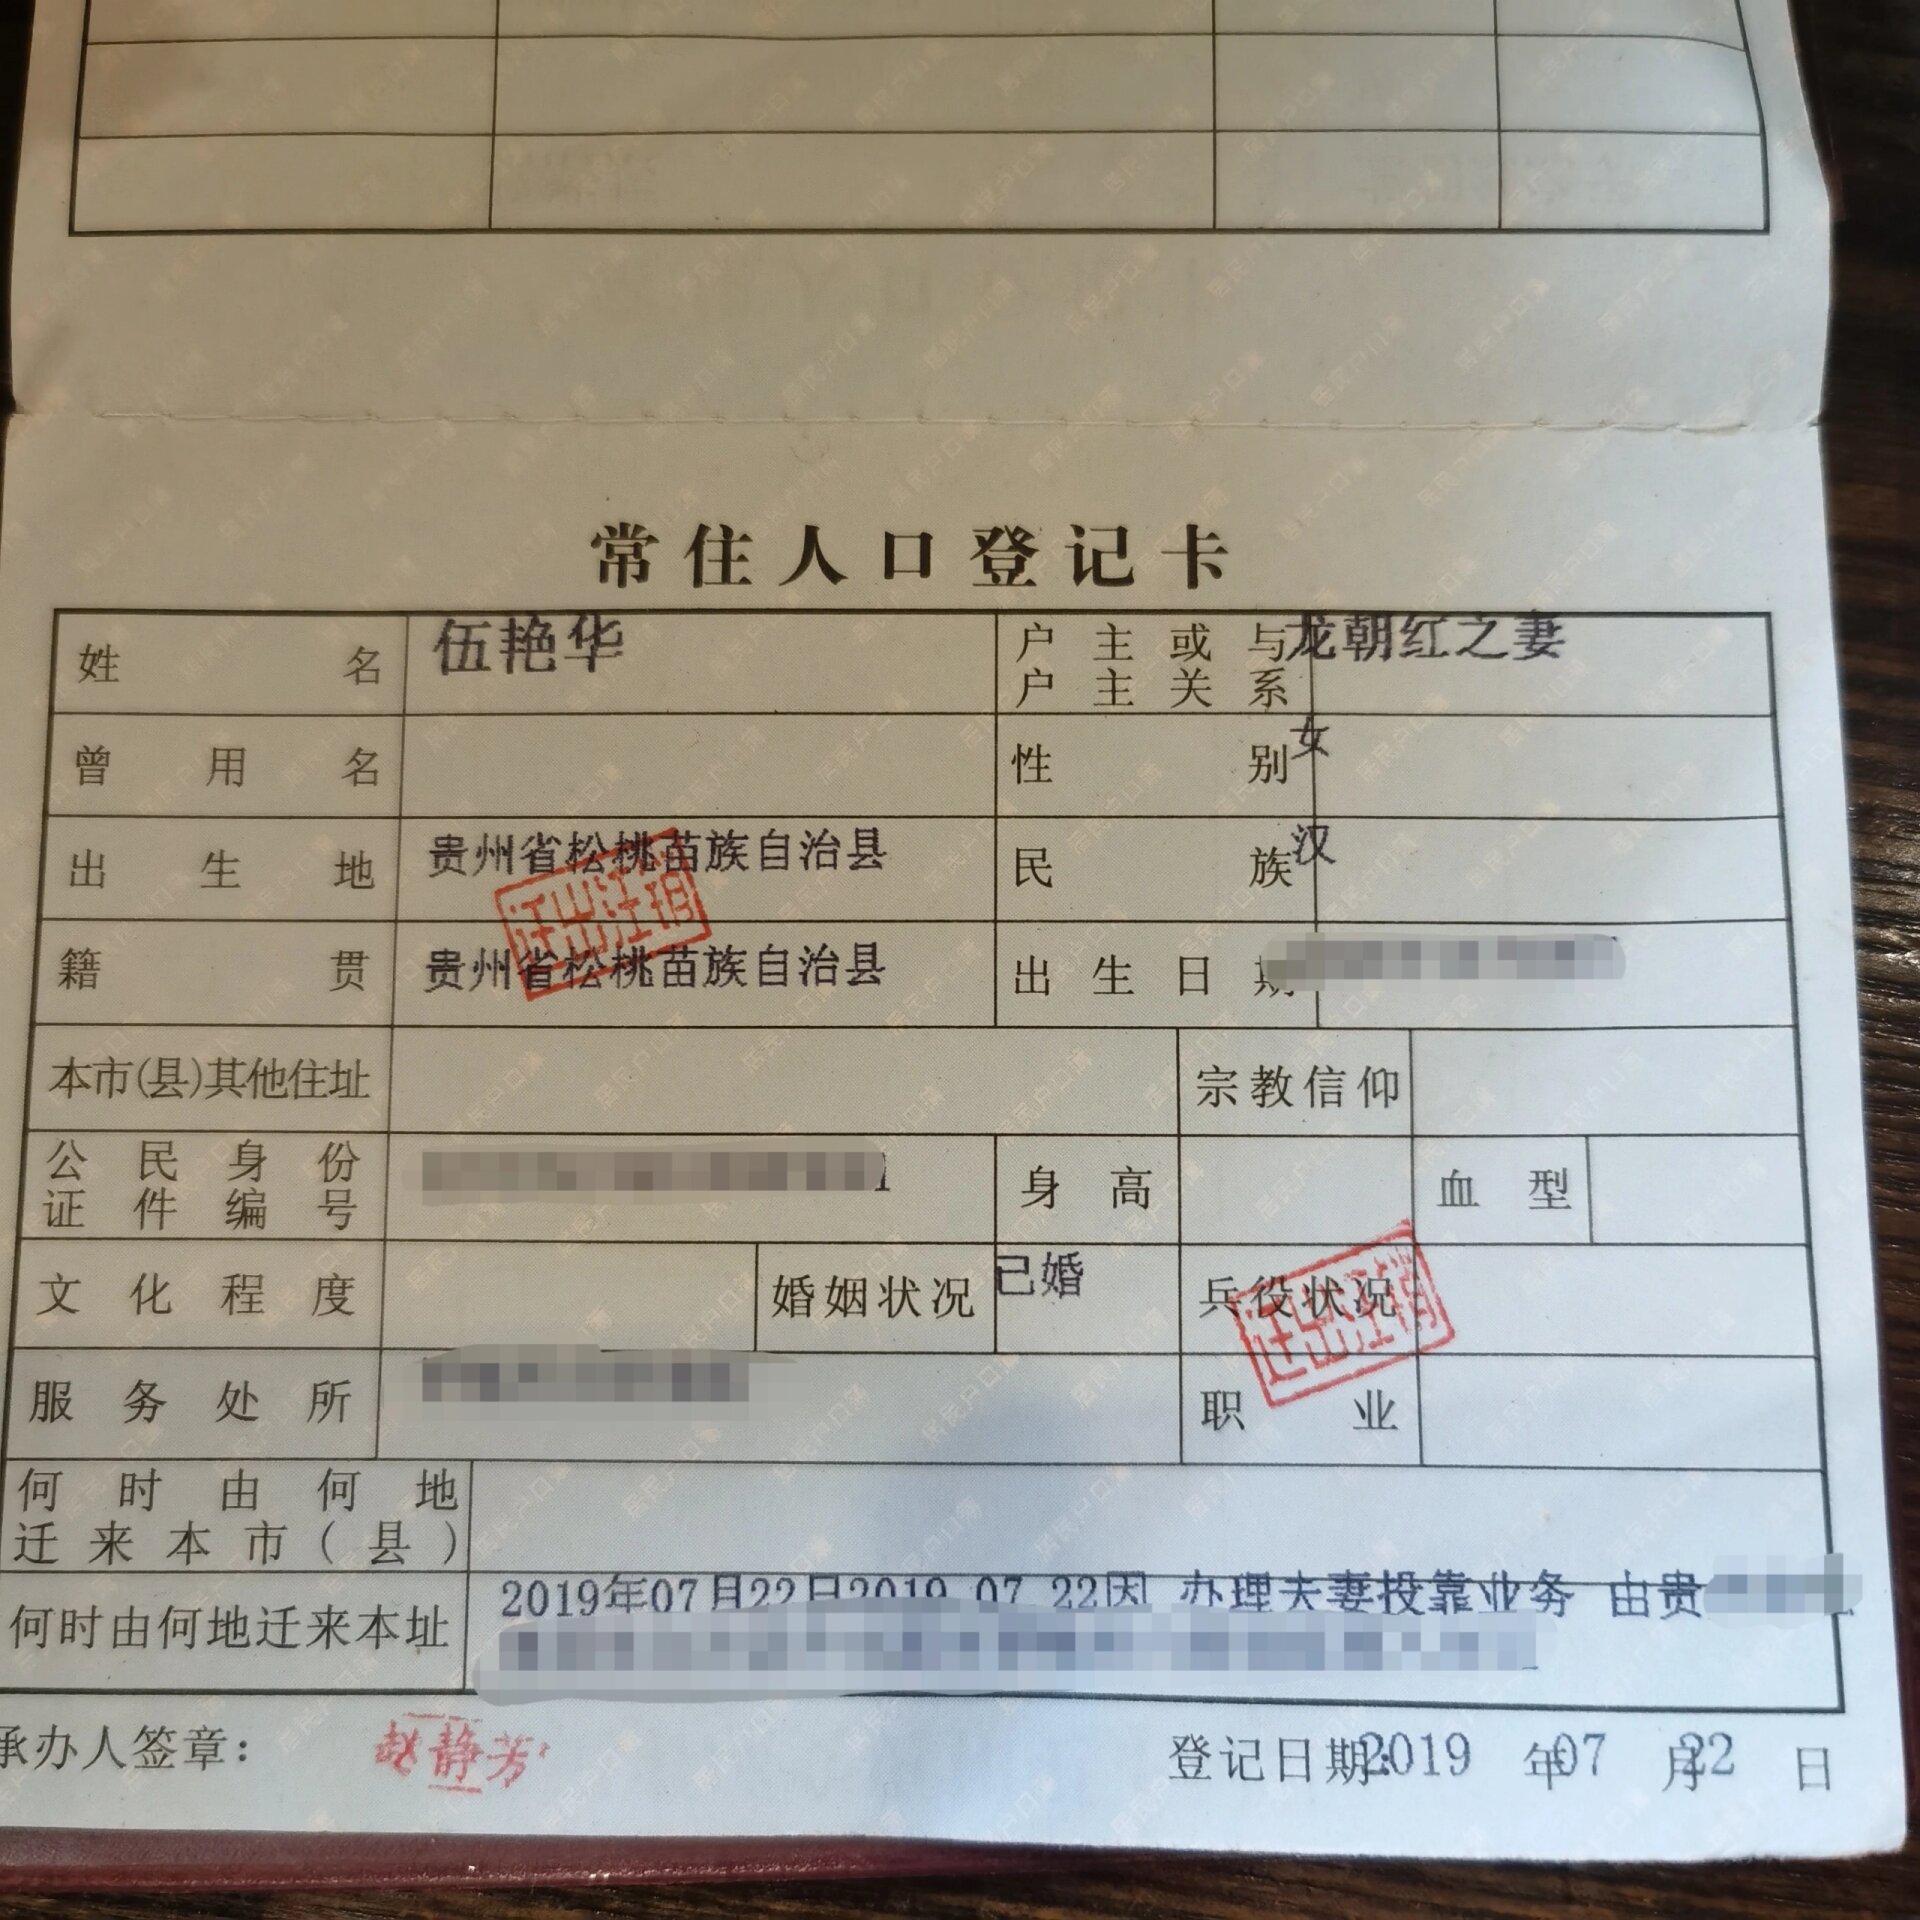 常住人口登记卡
姓名 伍艳华 户主或与户主关系 龙朝红之妻
曾用名 性别 女
出生地 贵州省松桃苗族自治县 民族 汉
迁出注销
籍贯 贵州省松桃苗族自治县 出生日期
本市(县)其他住址 宗教信仰
公民身份证件编号 身高 血型
文化程度 婚姻状况 已婚 兵役状况
迁出注销
服务处所 职业
何时由何地迁来本市(县)
何时由何地迁来本址 2019年07月22日2019.07.22因 办理夫妻投靠业务 由贵
承办人签章: 赵静芳 登记日期:2019年07月22日